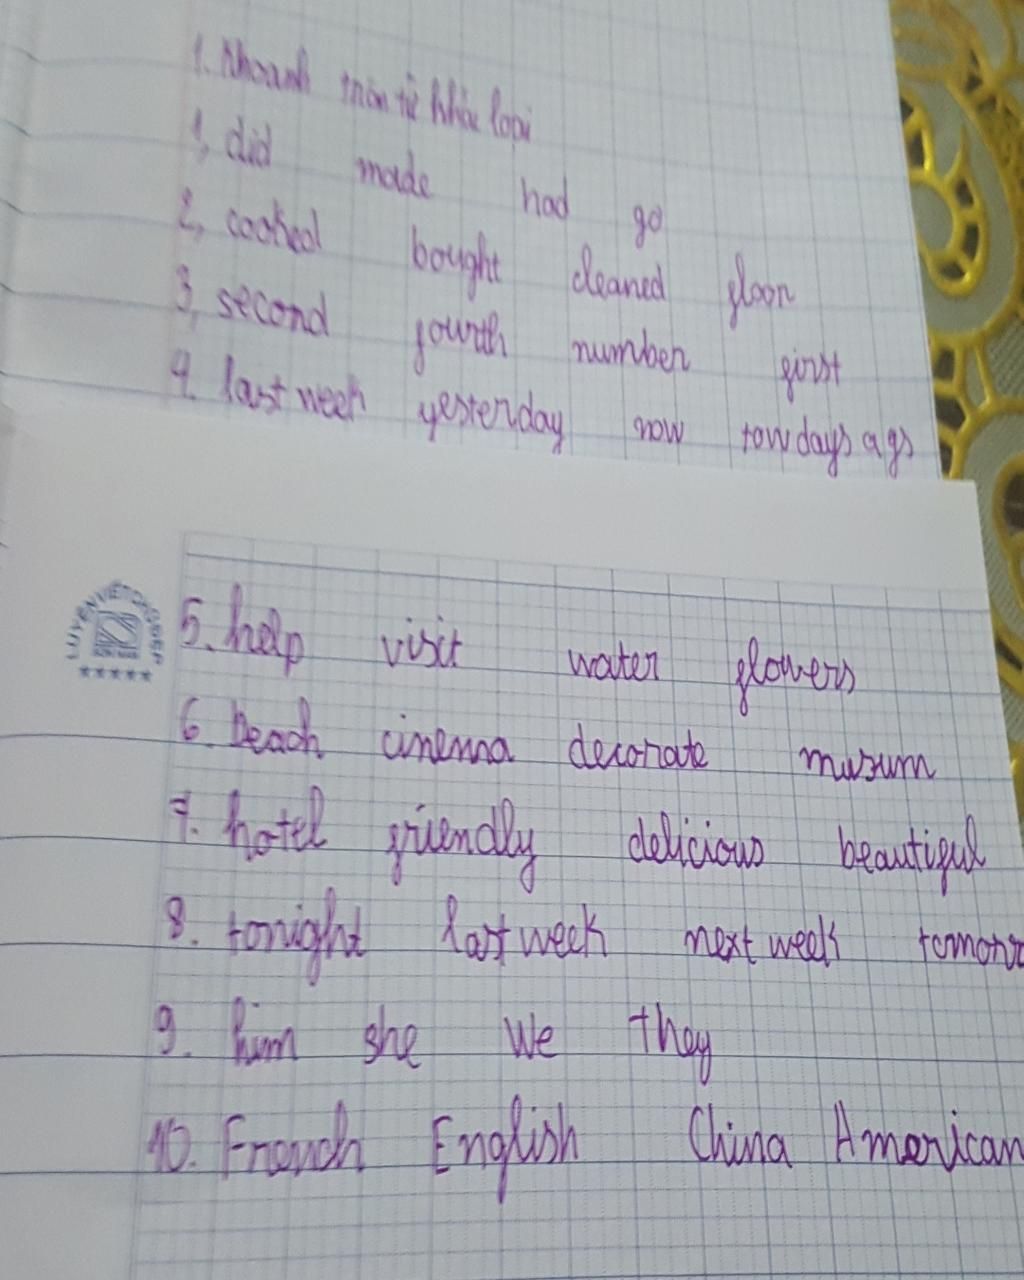 1. Khoanh tròn từ khác loại
1, did made had go
2, cooked bought cleaned floor
3, second fourth number first
4. last week yesterday now tow days ago
LUYENVIETCHUDEP
5. help visit water flowers
6. beach cinema decorate musum
7. hotel friendly delicious beautiful
8. tonight last week next week tomorr
9. him she We they
10. French English China American